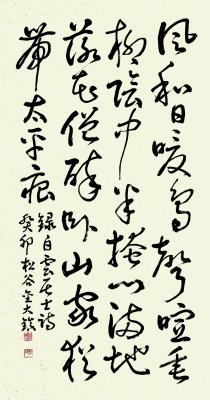 風和日暖鳥聲喧垂
柳陰中半掩門滿地
落花僧醉臥山家猶
帶太平痕
錄白雲居士詩
癸卯松谷金大